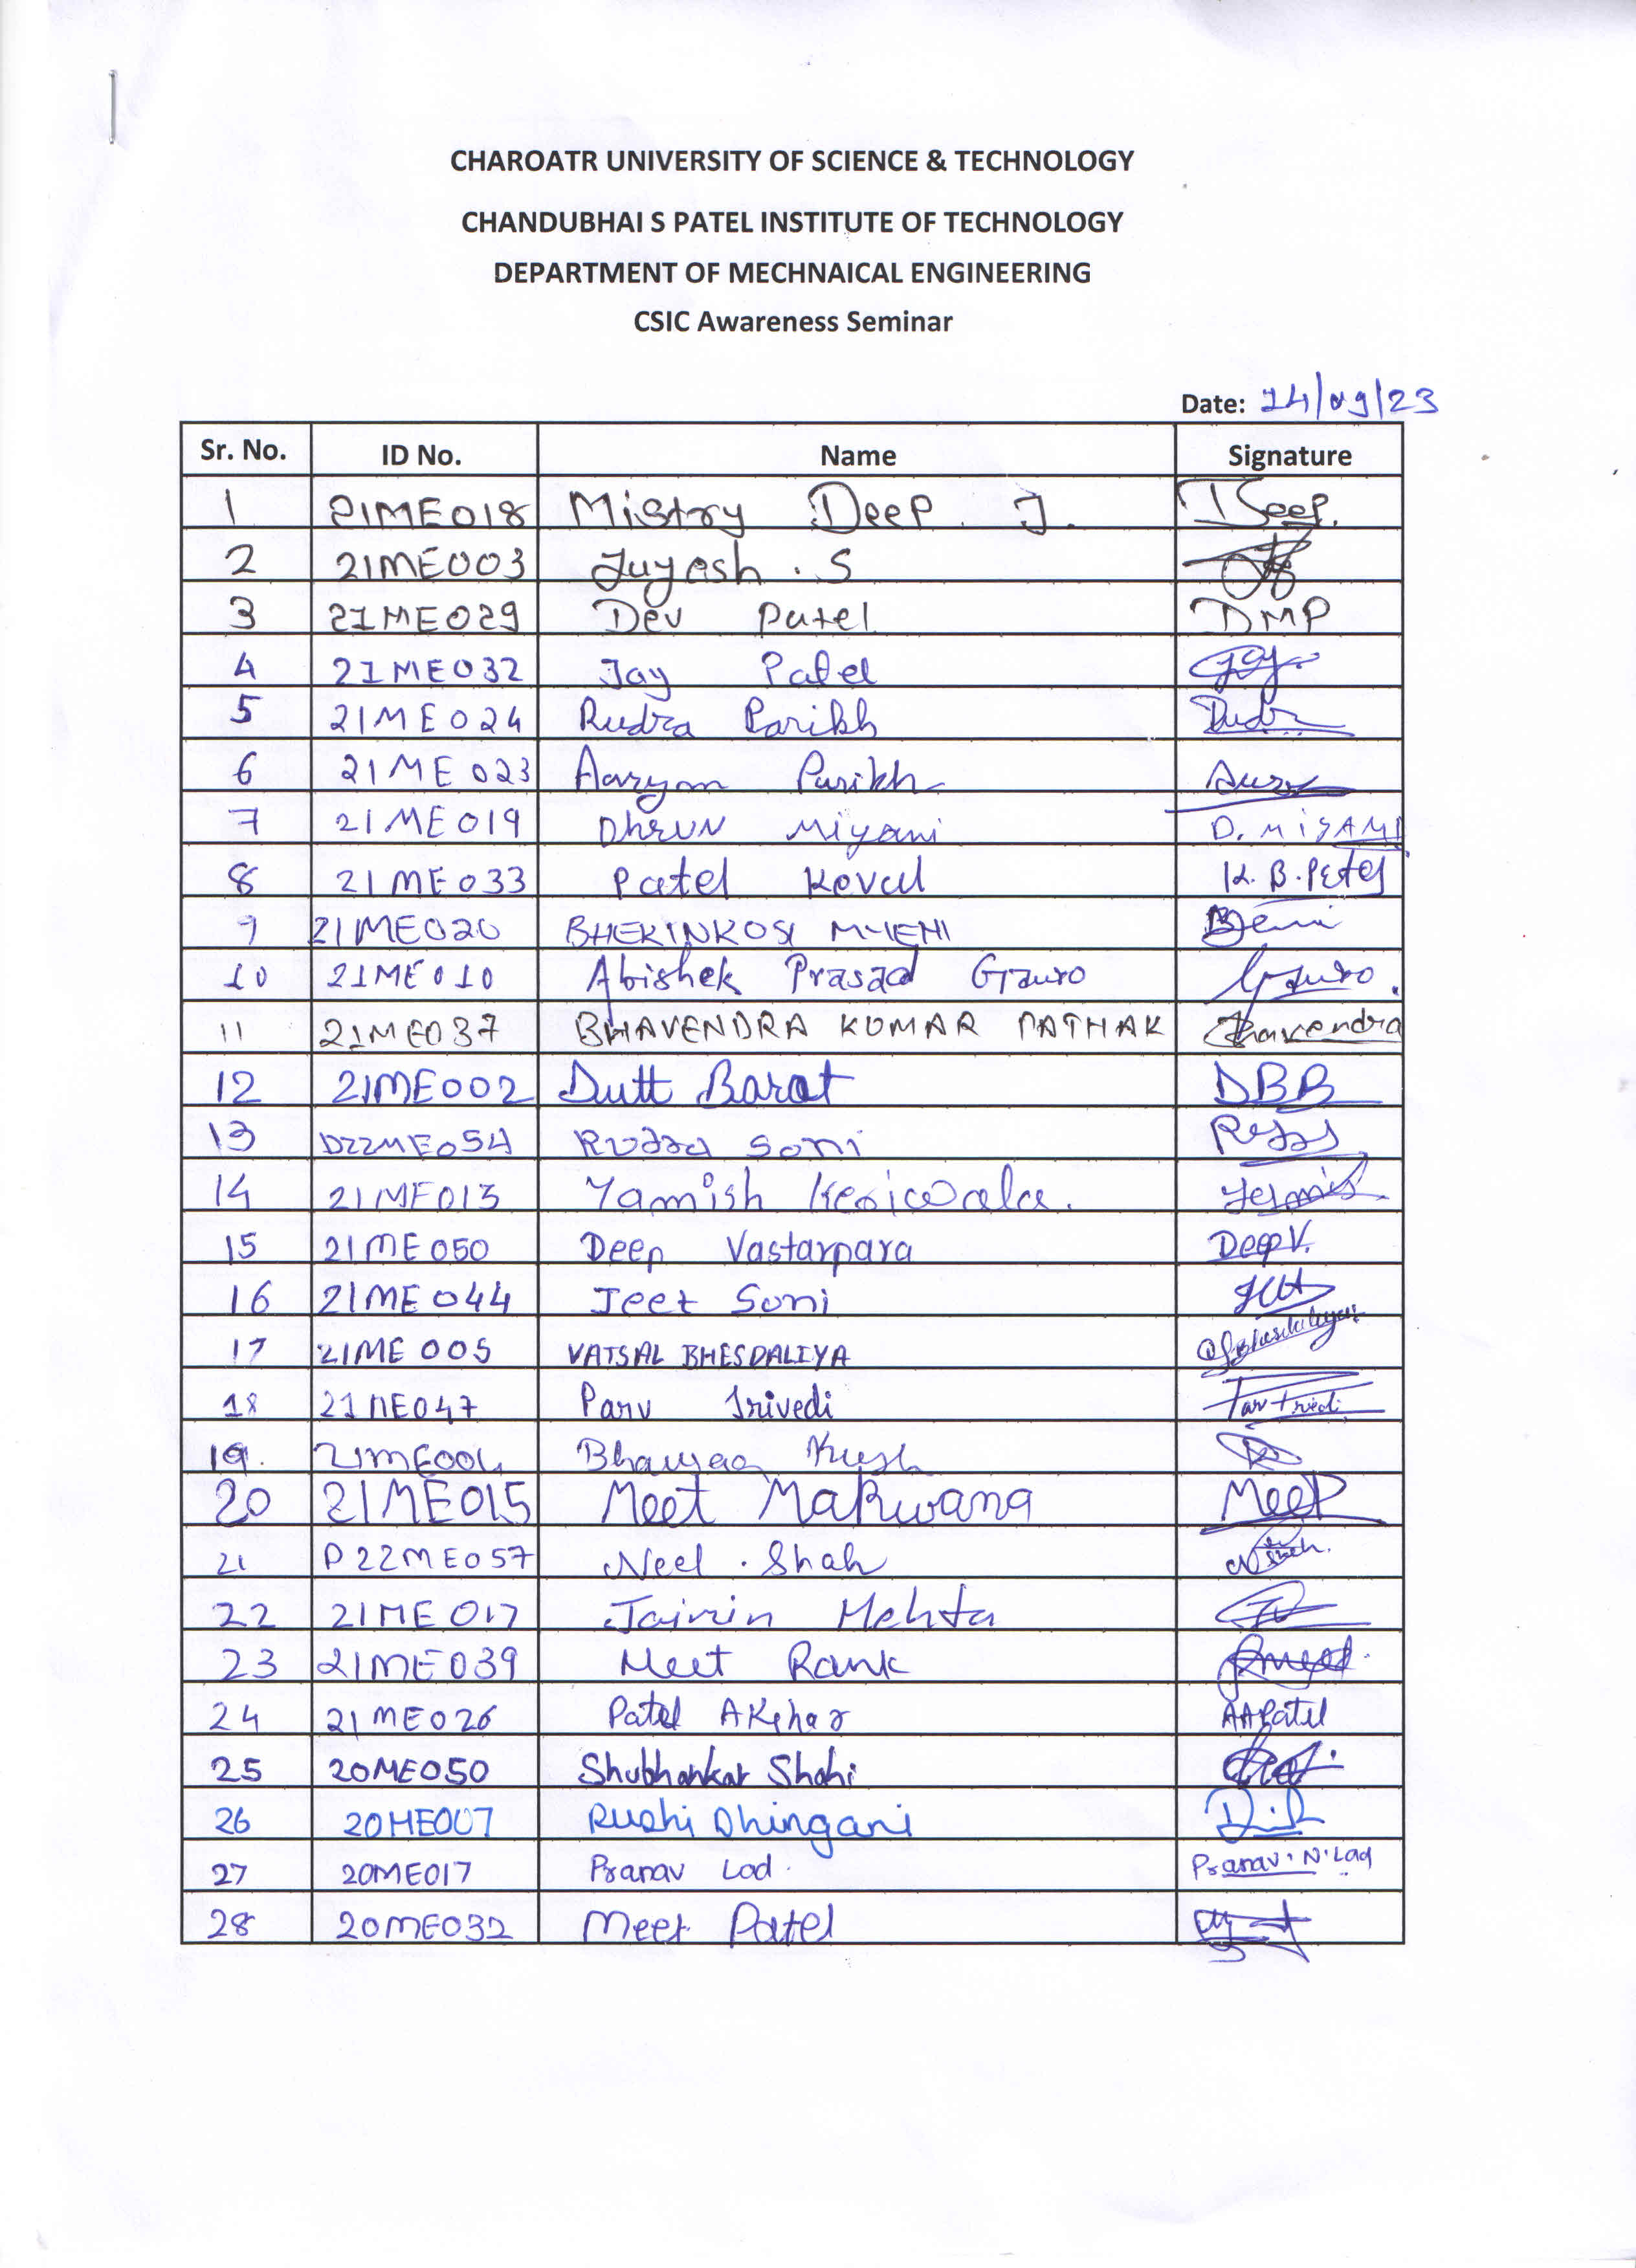 CHAROATR UNIVERSITY OF SCIENCE & TECHNOLOGY
CHANDUBHAI S PATEL INSTITUTE OF TECHNOLOGY
DEPARTMENT OF MECHNAICAL ENGINEERING
CSIC Awareness Seminar
Date: 14/09/23
Sr. No. ID No. Name Signature
1 21ME018 Mistry Deep J. Deep.
2 21ME003 Juyash . S
3 21ME029 Dev Patel DMP
4 21ME032 Jay Patel Jay
5 21ME024 Rudra Parikh Rudra
6 21ME023 Aaryan Parikh
7 21ME019 Dhruv Miyani D. MIYANI
8 21ME033 Patel Keval K. B. Patel
9 21ME020 BHEKINKOSI
10 21ME010 Abishek Prasad Gauro Gauro.
11 21ME037 BHAVENDRA KUMAR PATHAK Bhavendra
12 21ME002 Dutt Barot DBB
13 D22ME054 Rudra Soni
14 21ME013 Yamish Kesiwala.
15 21ME050 Deep Vastarpara Deep V.
16 21ME044 Jeet Soni
17 21ME005 VATSAL BHESDALIYA
18 21ME047 Parv Trivedi
19. Bhavya Kush
20 21ME015 Meet Makwana Meet
21 D22ME057 Neel . Shah
22 21ME017 Jaimin Mehta
23 21ME039 Meet Rank
24 21ME026 Patel Akshar AAPatel
25 20ME050 Shubhankar Shahi
26 20ME007 Rushi Dhingani
27 20ME017 Pranav Lad Pranav.N.Lad
28 20ME032 Meet Patel